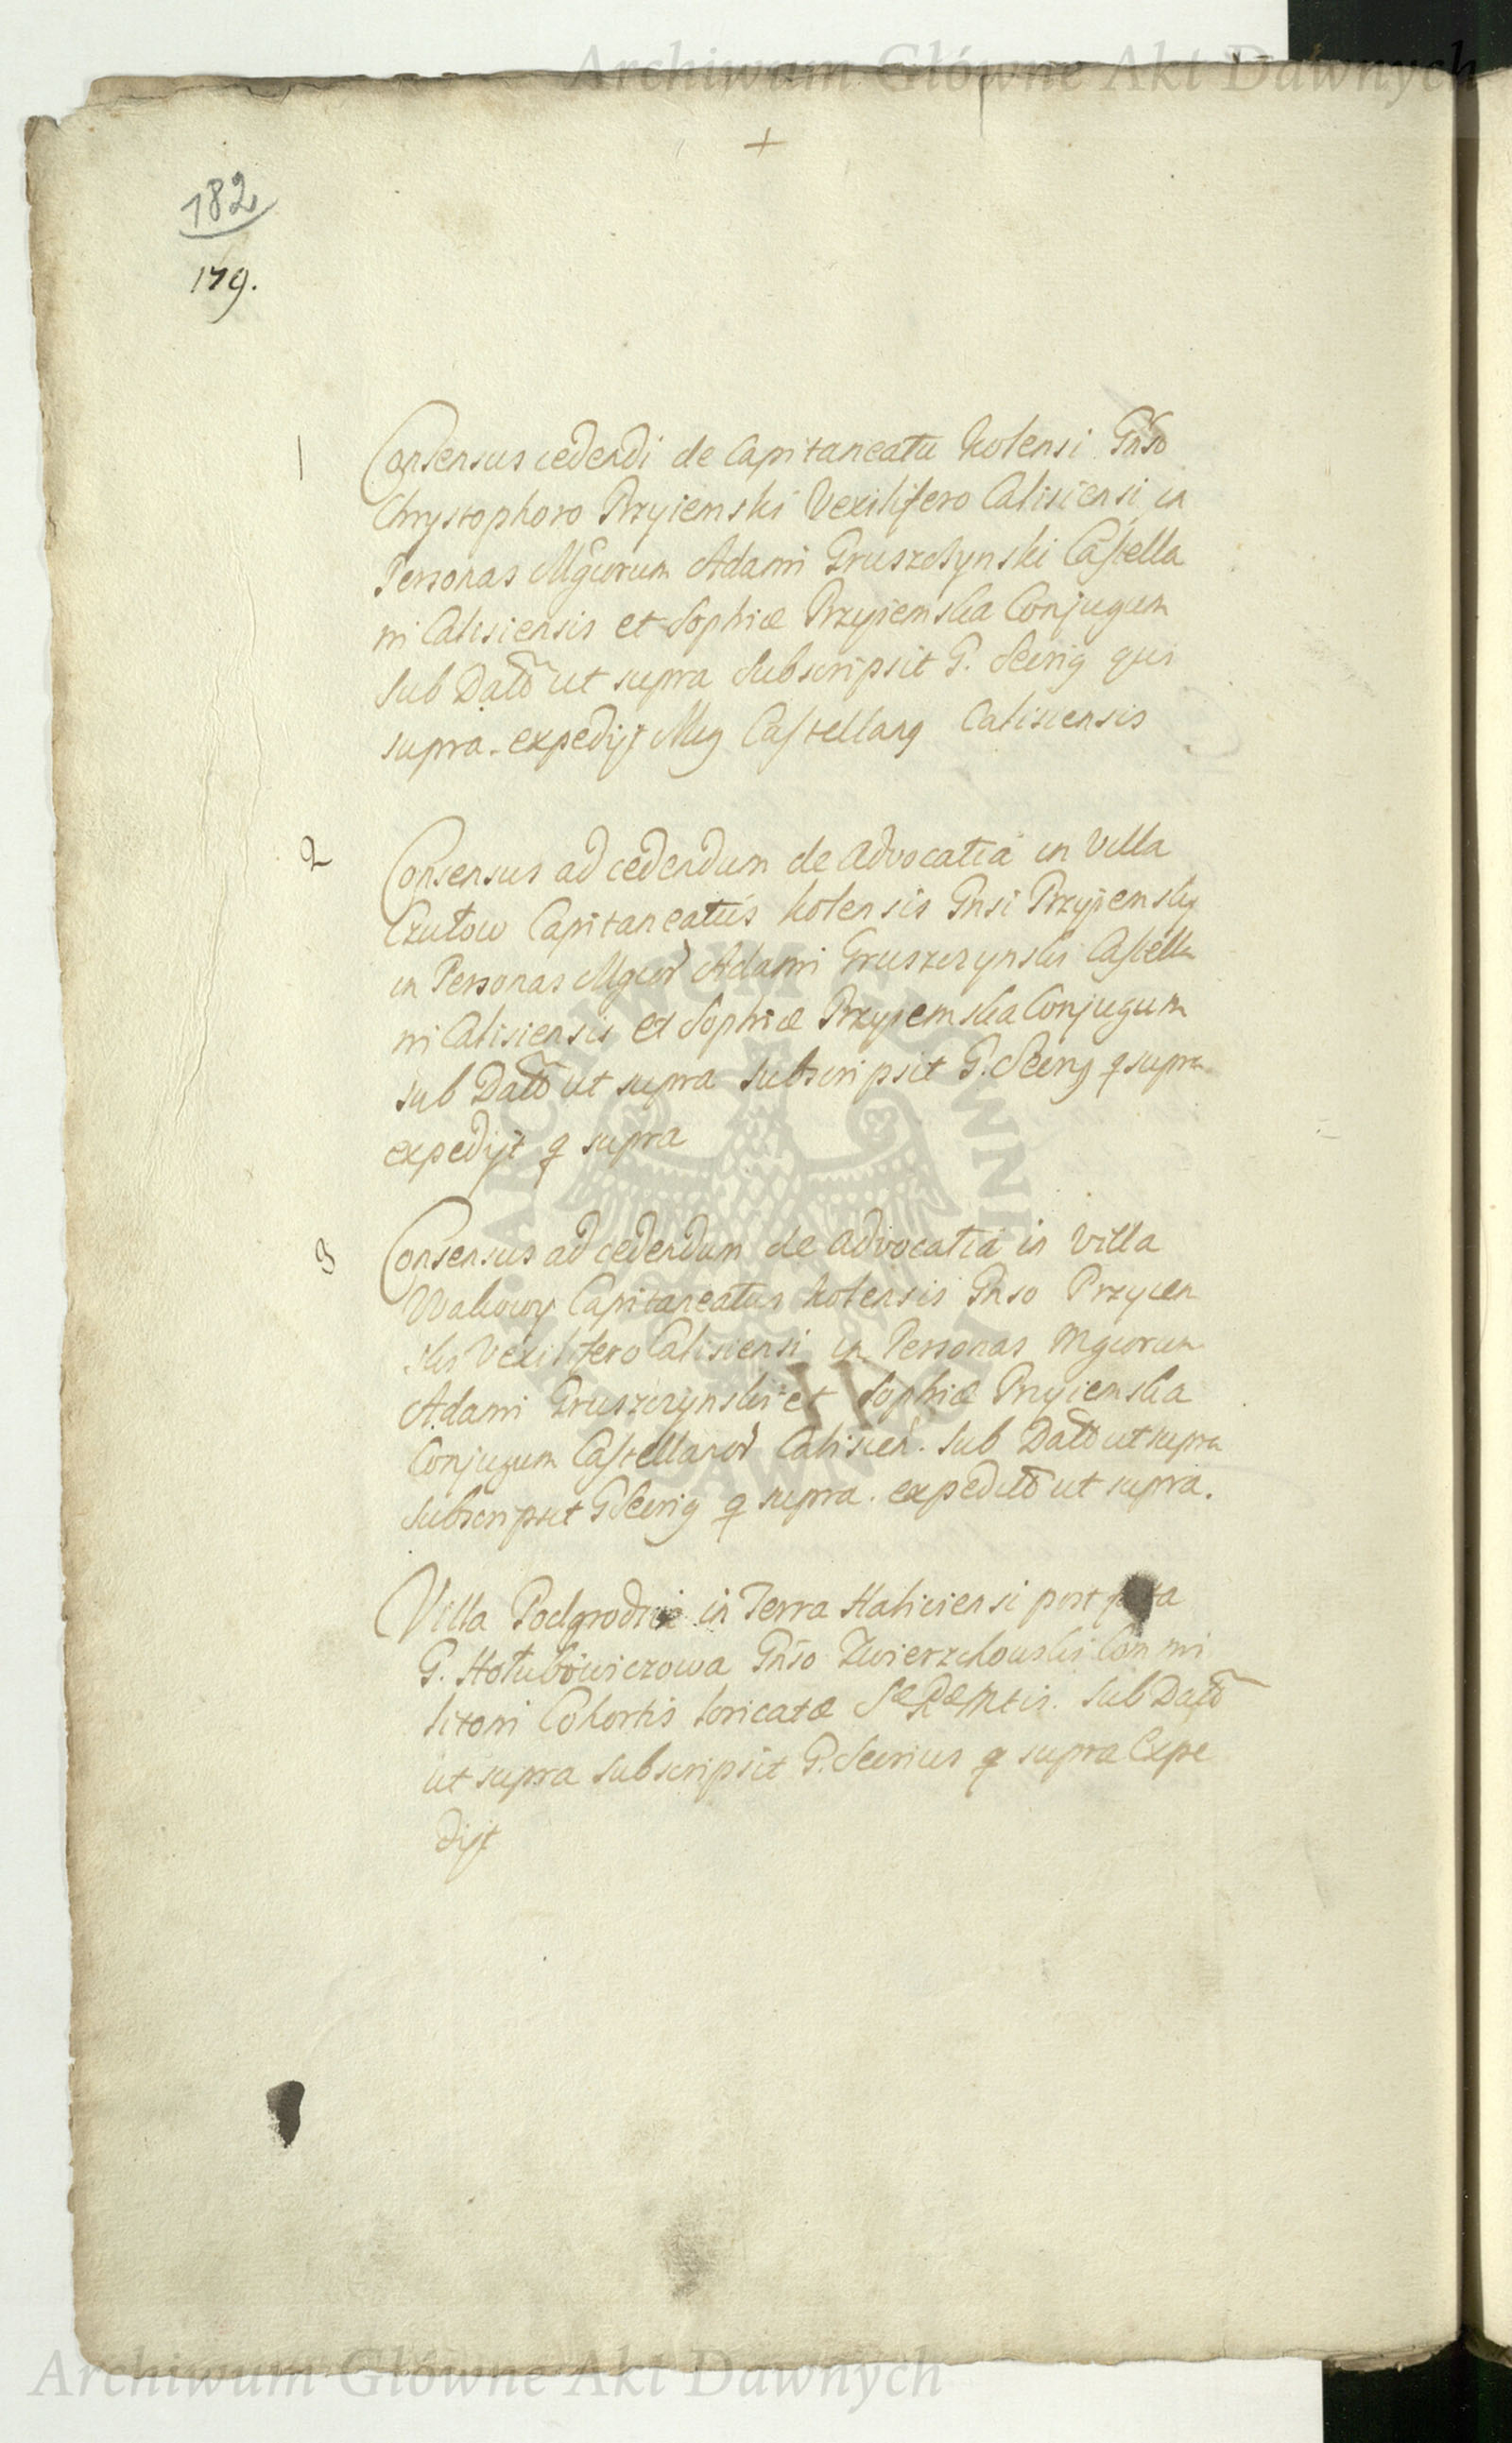 Archiwum Główne Akt Dawnych
+
182
179.
1 Consensus cedendi de Capitaneatu Kolensi Gnso
Chrystophoro Przyiemski Vexilifero Calisiensi in
Personas Mgcorum Adami Gruszczynski Castella
ni Calisiensis et Sophiæ Przyiemska Conjugum
sub Datō ut supra Subscripsit G. Secrig qui
supra. expedijt Mcg Castellang Calisiensis
2 Consensus ad cedendum de Advocatia in Villa
Czułow Capitaneatus Kolensis Gnsi Przyiemsky
in Personas Mgcor Adami Gruszczynski Castella
ni Calisiensis et Sophiæ Przyiemska Conjugum
sub Datō ut supra subscripsit G. Secrig q supra
expedijt q supra
3 Consensus ad cedendum de Advocatia in Villa
Capitaneatus Kolensis Gnso Przyiem
ski Vexilifero Calisiensi in Personas Mgcorum
Adami Gruszczynski et Sophiæ Przyiemska
Conjugum Castellanor Calisien. sub Datō ut supra
subscripsit G Secrig q supra. expeditō ut supra.
Villa Podgrodzie in Terra Haliciensi post
G. Hołubowiczowa Gnso Zwierzchouski Commi
litoni Cohortis loricatæ Sæ Ræ Mtis. sub Datō
ut supra subscripsit G. Secrius q supra Expe
dijt
ARCHIWUM GŁÓWNE AKT DAWNYCH
Archiwum Główne Akt Dawnych